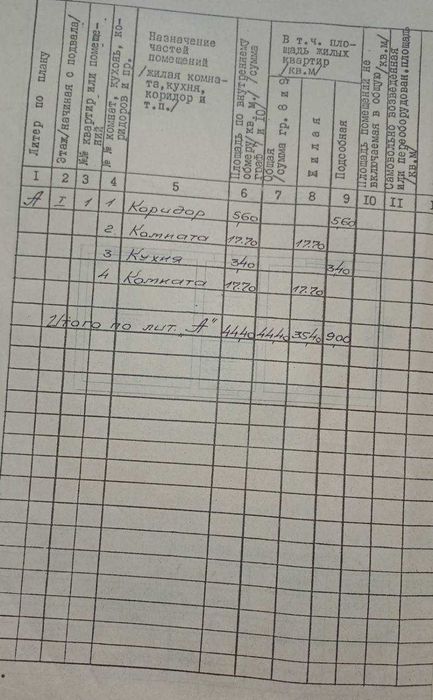 Литер по плану
Этаж/начиная с подвала/
№№ квартир или помеще-
ний
№ № комнат, кухонь, ко-
ридоров и пр.
Назначение
частей
помещений
/жилая комна-
та,кухня,
коридор и
т.п./
Площадь по внутреннему
обмеру/кв.м./сумма
граф 7 и 10/
В т.ч. пло-
щадь жилых
квартир
/кв.м/
Общая
/сумма гр. 8 и 9/
Жилая
Подсобная
Площадь помещений не
включаемая в общую/кв.м/
Самовольно возведенная
или переоборудован.площадь
/кв.м/
I 2 3 4 5 6 7 8 9 IO II
А I 1 1 Коридор 5,60 5,60
2 Комната 17.70 17.70
3 Кухня 3,40 3,40
4 Комната 17.70 17.70
Итого по лит. „А" 44,40 44,40 35,40 9,00